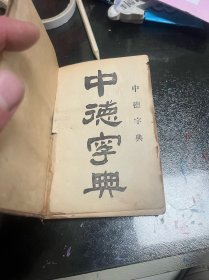 中德字典
中德字典